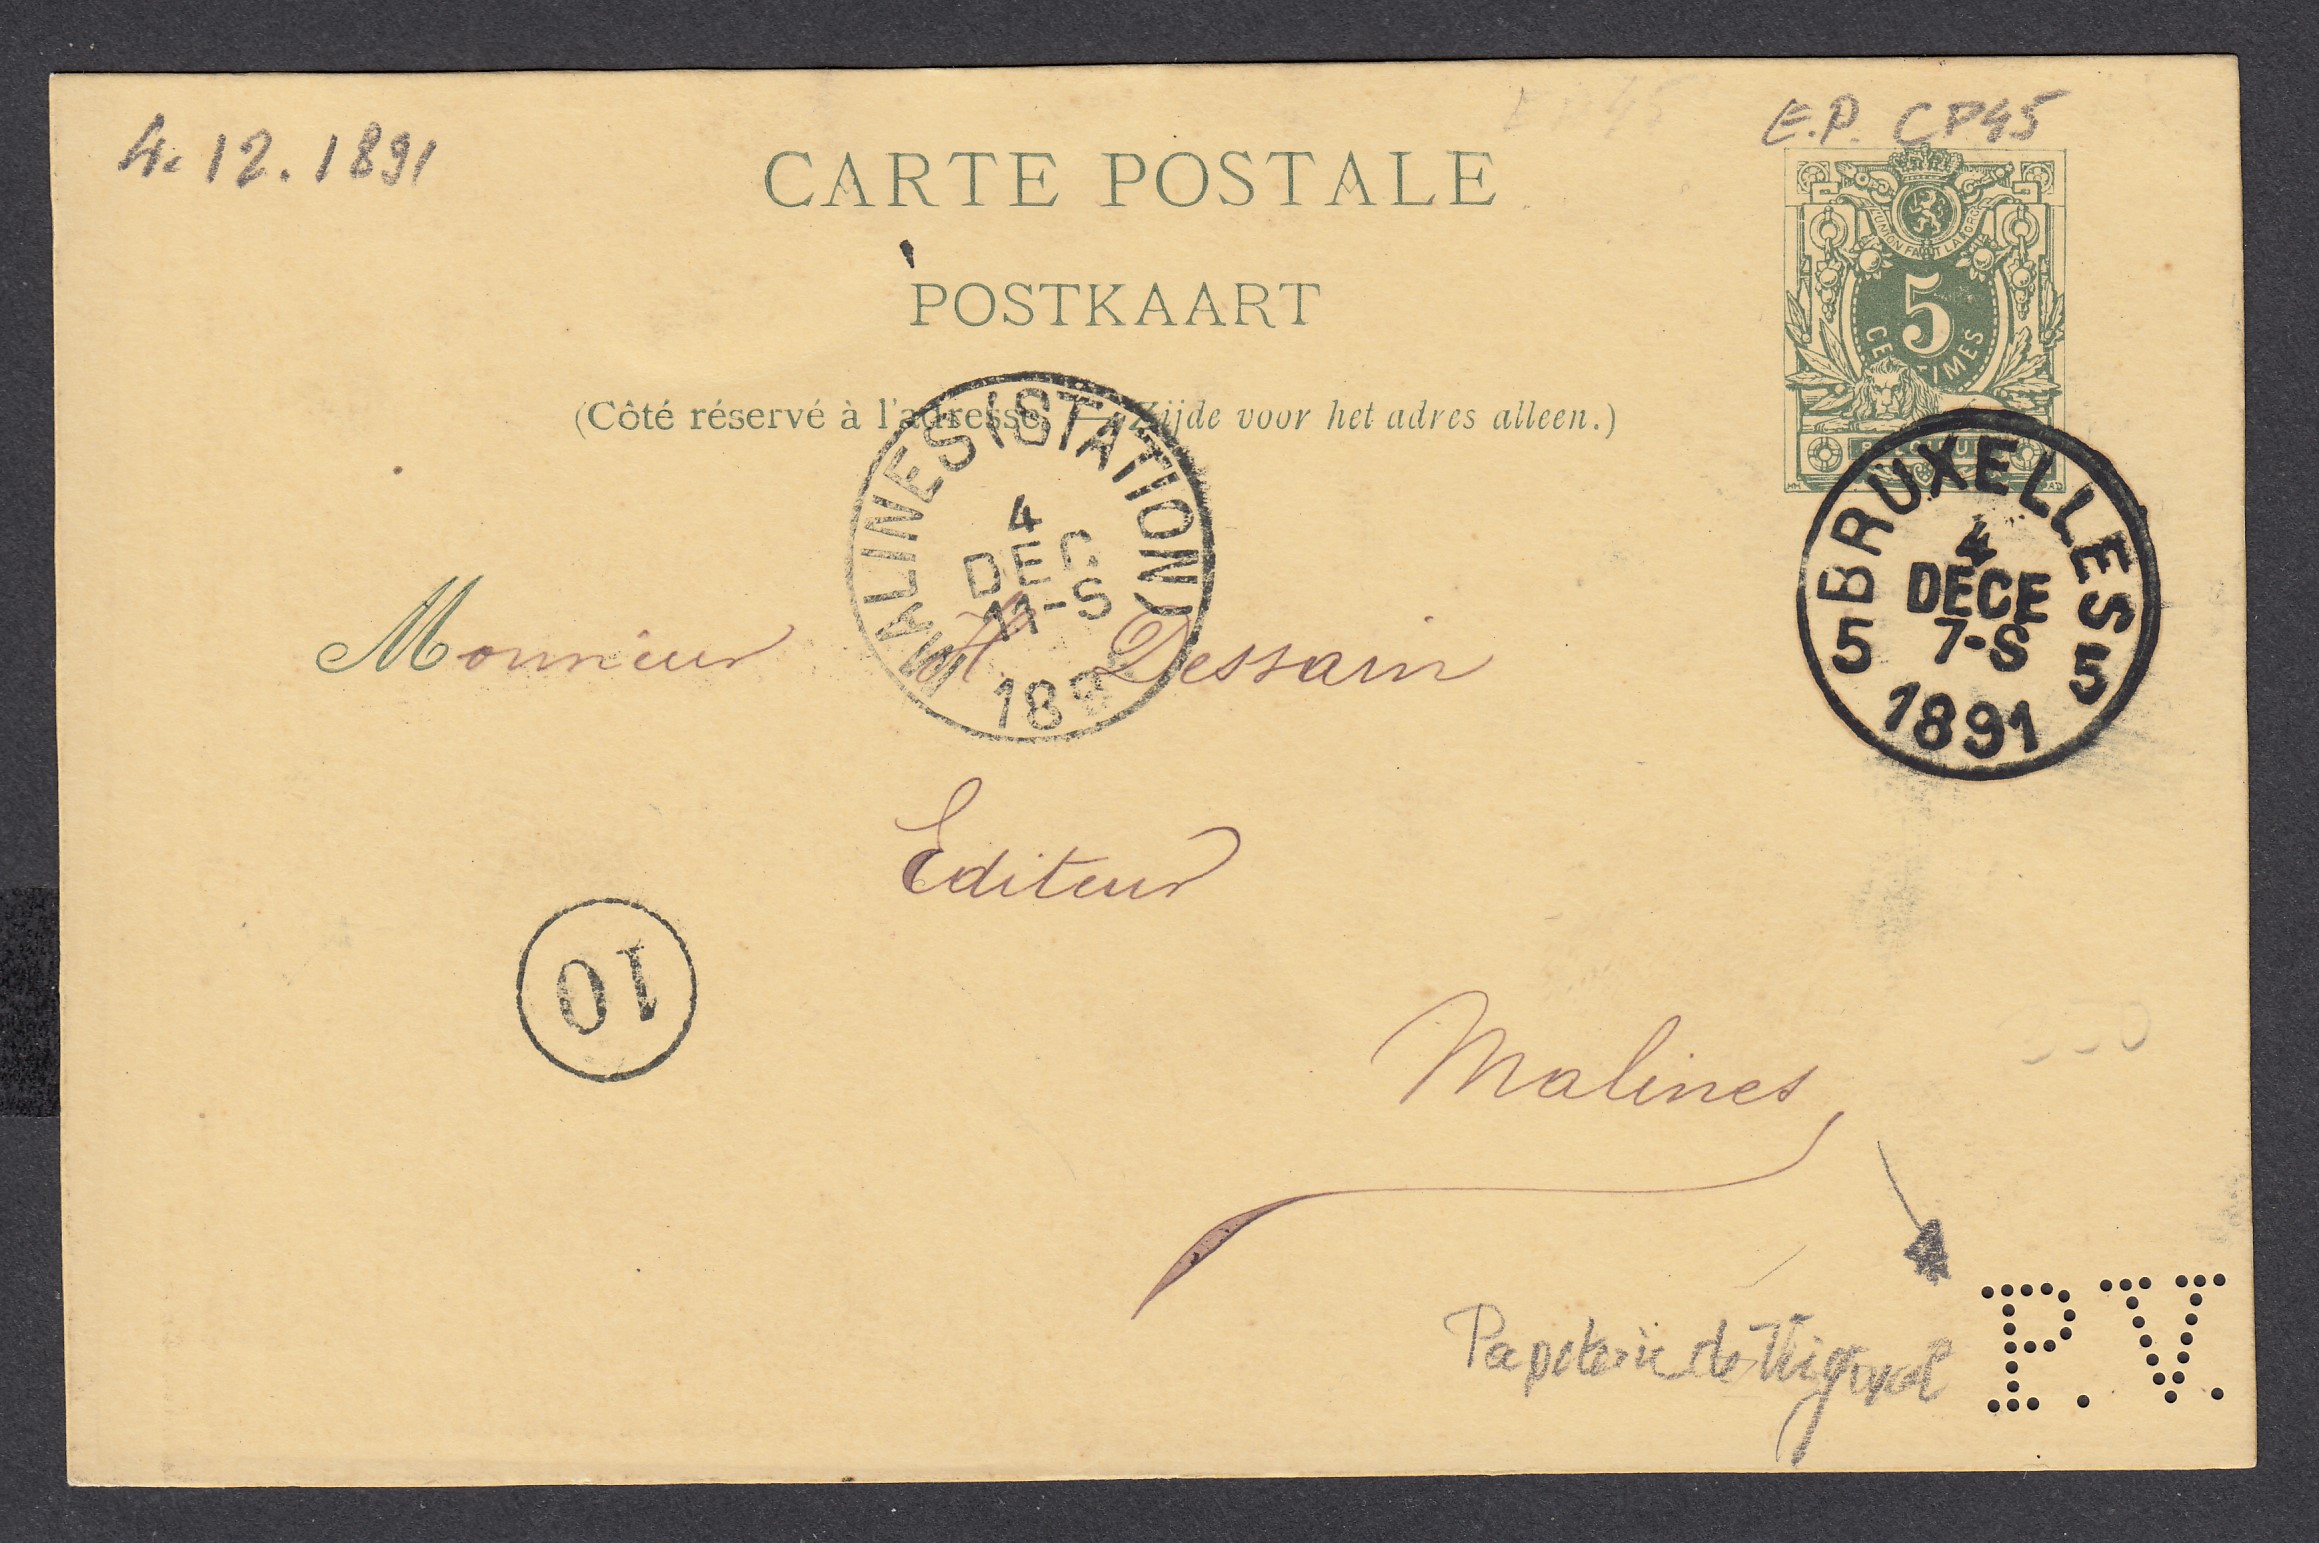 4. 12. 1891
E.P. CP45
CARTE POSTALE
POSTKAART
(Côté réservé à l'adresse. — Zijde voor het adres alleen.)
L'UNION FAIT LA FORCE
5
CENTIMES
BELGIQUE
MALINES (STATION)
4
DEC
11-S
189
BRUXELLES
4
DECE
7-S
5 5
1891
Monsieur H Dessain
Editeur
10
Malines
Papeterie de
P.V.